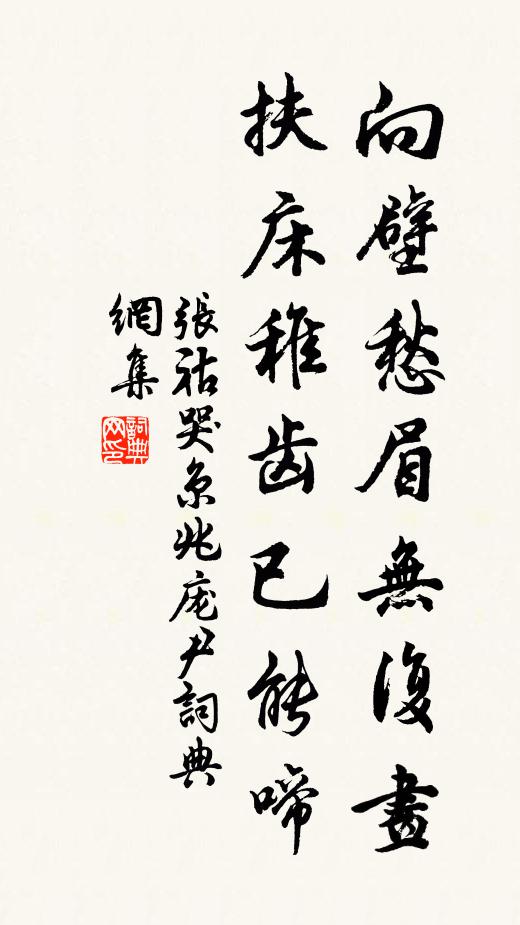 向壁愁眉無復畫
扶床稚齿已能啼
張祜哭京兆庞尹詞典
網集
詞典
网印